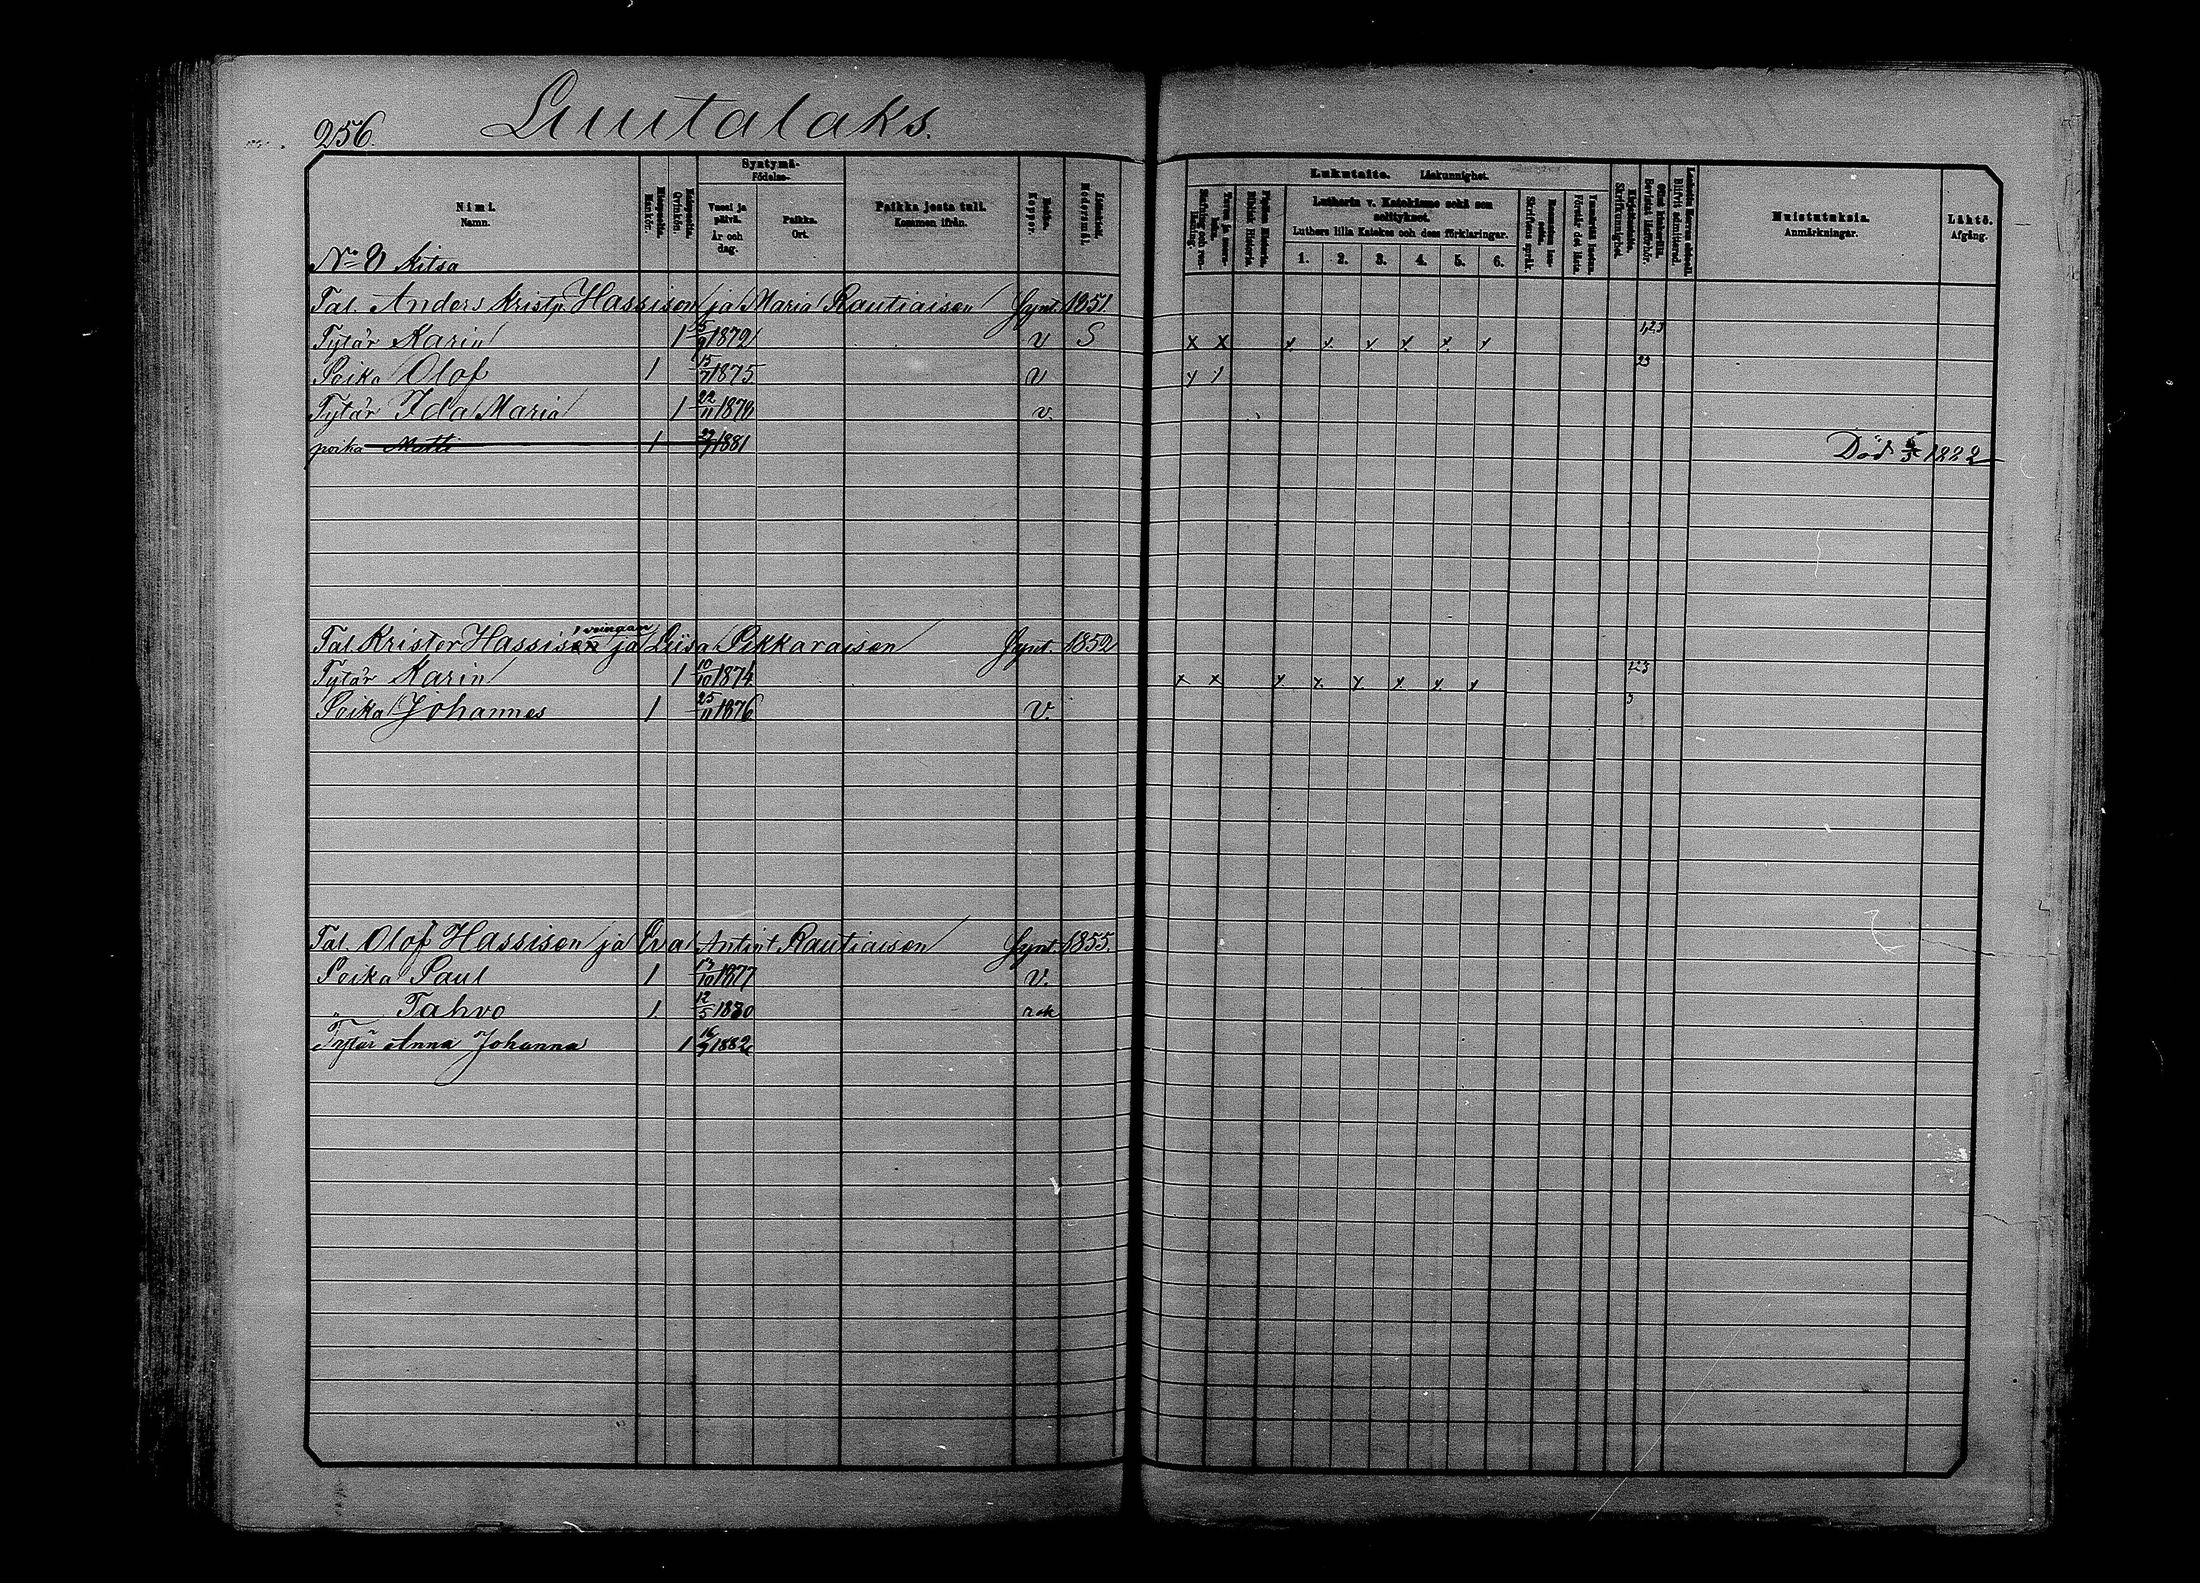 256. Luutalaks.
Nimi. Namn. Miespuolia. Mankön. Naispuolia. Qvinkön. Syntymä- Födelse- Vuosi ja päivä. År och dag. Paikka. Ort. Paikka josta tuli. Kommen ifrån. Rokko. Koppor. Äitinkieli. Modersmål. Lukutaito. Läskunnighet. Lutherin v. Katekismo sekä sen selitykset. Luthers lilla Katekes och dess förklaringar. 1. 2. 3. 4. 5. 6. Muistutuksia. Anmärkningar. Lähtö. Afgång.
No 8 Kitsa
Tal. Anders Kristp. Hassisen ja Maria Rautiaisen Synt. 1851.
Tytär Karin 1 5/9 1872 v S x x x x x x x x 1,2,3
Poika Olof 1 15/7 1875 v y 1 23
Tytär Ida Maria 1 22/11 1878 v.
poika Matti 1 1881 Död 1882
Tal. Krister Hassisen vaingan ja Liisa Pekkaraisen Synt. 1852
Tytär Karin 1 10/10 1874 x x x x x x x x 123
Poika Johannes 1 25/11 1876 V. 3
Tal. Olof Hassisen ja Eva Antint. Rautiaisen Synt. 1855.
Poika Paul 1 1877 V.
" Tahvo 1 12/5 1880 rok
Tytär Anna Johanna 1 16/9 1882